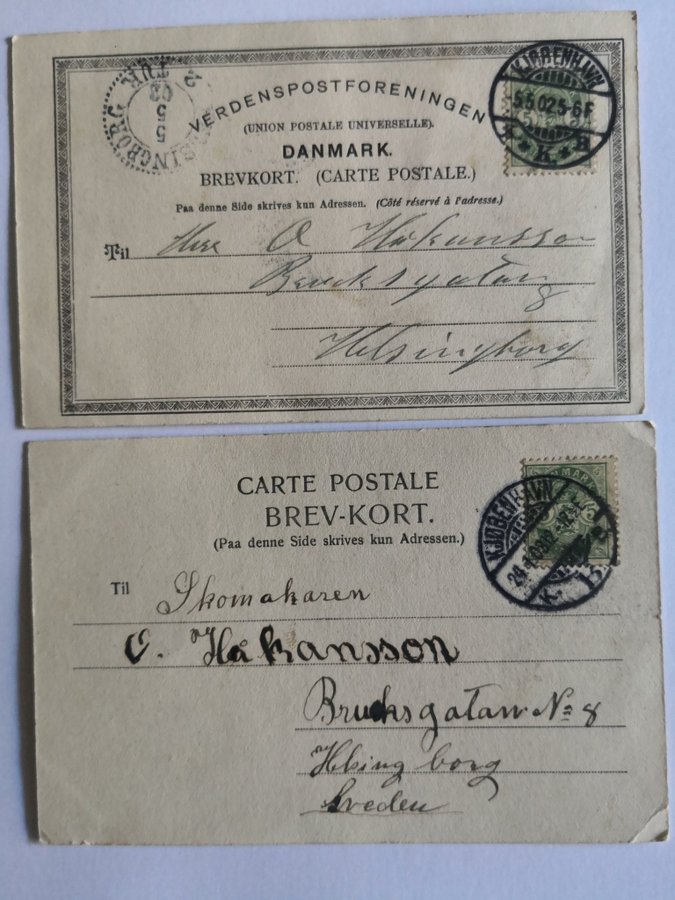 VERDENSPOSTFORENINGEN
(UNION POSTALE UNIVERSELLE).
DANMARK.
BREVKORT. (CARTE POSTALE.)
Paa denne Side skrives kun Adressen. (Côté réservé à l'adresse.)
KJØBENHAVN
5.5.02 5-6 F
K
HELSINGBORG
5
5
02
TUR
2
Til Herr O Håkansson
Brucksgatan
8
Helsingborg
CARTE POSTALE
BREV-KORT.
(Paa denne Side skrives kun Adressen.)
KJØBENHAVN
K. B
Til Skomakaren
O. Håkansson
Brucksgatan No 8
Hlsingborg
Sveden